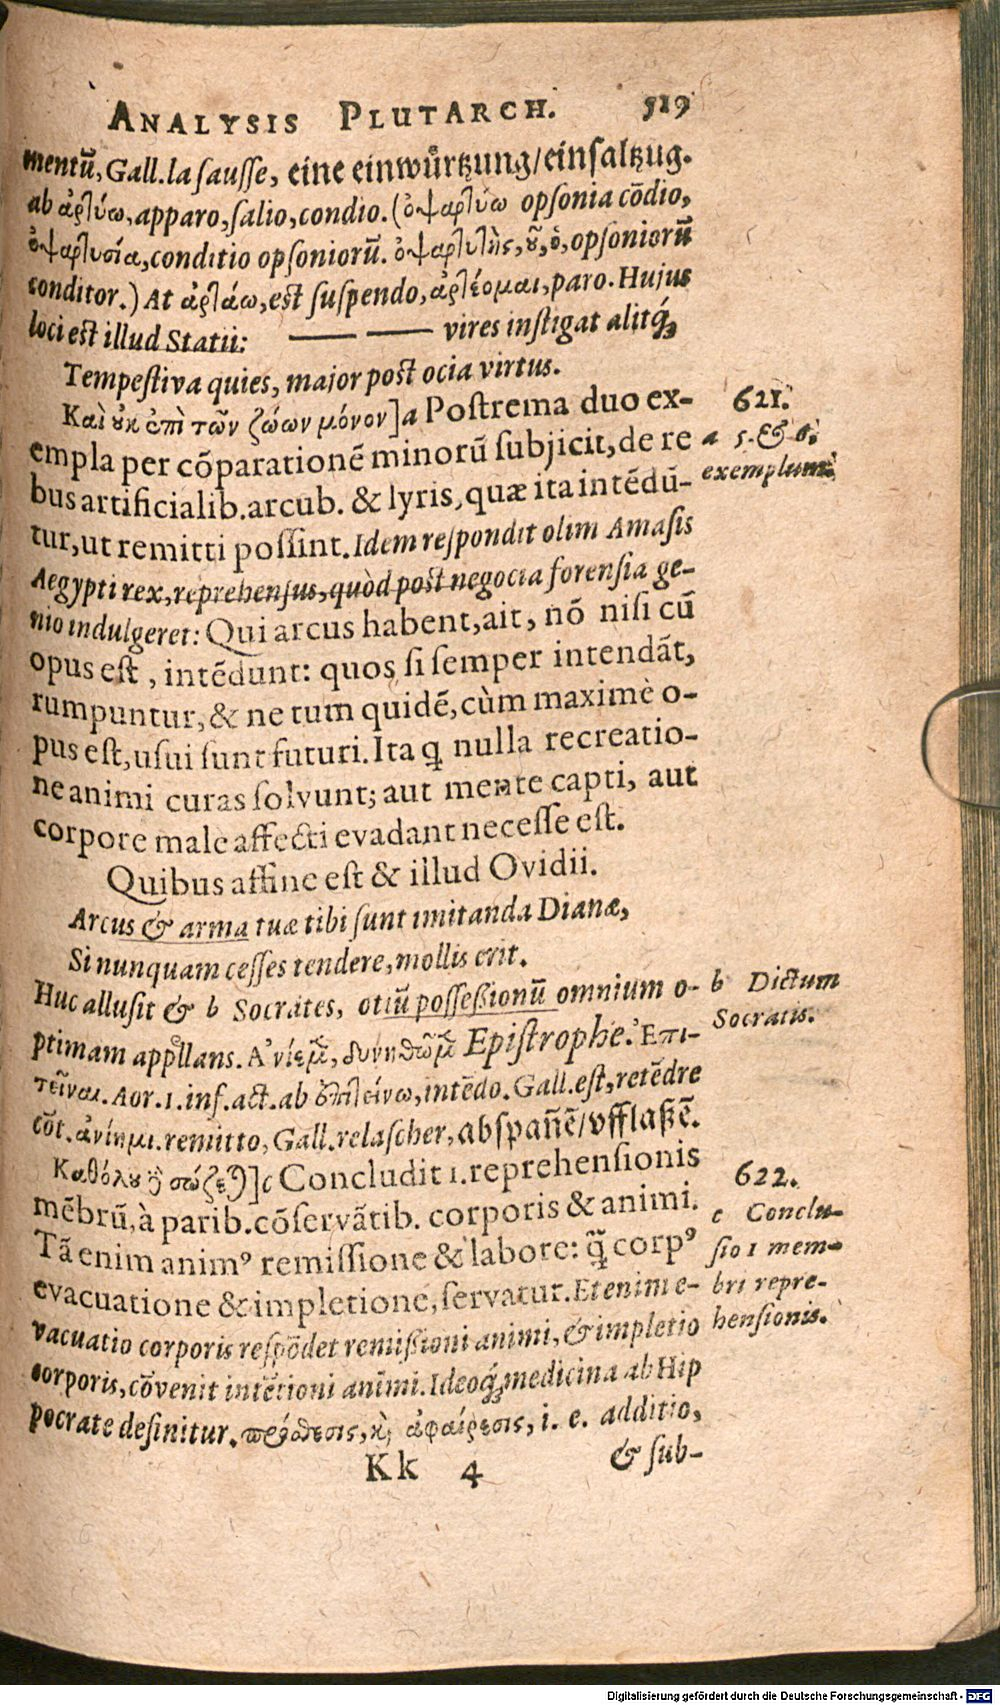 ANALYSIS PLUTARCH. 519
mentũ, Gall. la sausse, eine einwůrtzung/einsaltzug.
ab ἀρτύω, apparo, salio, condio. (ὀψαρτύω opsonia cõdio,
ὀψαρτυσία, conditio opsoniorũ. ὀψαρτυτὴς, οῦ, ὁ, opsoniorũ
conditor.) At ἀρτάω, est suspendo, ἀρτέομαι, paro. Hujus
loci est illud Statii: —— —— vires instigat alitq́;
Tempestiva quies, major post ocia virtus.
Καὶ οὐκ ἐπὶ τῶν ζώων μόνον]a Postrema duo ex-
empla per cõparationẽ minorũ subjicit, de re
bus artificialib. arcub. & lyris, quæ ita intẽdũ-
tur, ut remitti possint. Idem respondit olim Amasis
Aegypti rex, reprehensus, quòd post negocia forensia ge-
nio indulgeret: Qui arcus habent, ait, nõ nisi cũ
opus est, intẽdunt: quos si semper intendãt,
rumpuntur, & ne tum quidẽ, cùm maximè o-
pus est, usui sunt futuri. Ita q̃ nulla recreatio-
ne animi curas solvunt; aut mente capti, aut
corpore male affecti evadant necesse est.
Quibus affine est & illud Ovidii.
Arcus & arma tuæ tibi sunt imitanda Dianæ,
Si nunquam cesses tendere, mollis erit.
Huc allusit & b Socrates, otiũ possessionũ omnium o-
ptimam appellans. Ἀνίεμεν, δυνηθῶμεν Epistrophe. Ἐπι-
τεῖναι. Aor. 1. inf. act. ab ἐπιτείνω, intẽdo. Gall. est, retẽdre
cõt. ἀνίημι. remitto, Gall. relascher, abspañẽ/vfflaßẽ.
Καθόλου δὲ σώζεται]c Concludit 1. reprehensionis
mẽbrũ, à parib. cõservãtib. corporis & animi.
Tã enim animꝰ remissione & labore: q̃ corpꝰ
evacuatione & impletione, servatur. Etenim e-
vacuatio corporis respõdet remissioni animi, & impletio
corporis, cõvenit intẽtioni animi. Ideoq́; medicina ab Hip
pocrate definitur. πρόσθεσις, καὶ ἀφαίρεσις, i. e. additio,
Kk 4 & sub-
621.
a 5. & 6.
exemplum.
b Dictum
Socratis.
622.
c Conclu-
sio 1 mem-
bri repre-
hensionis.
Digitalisierung gefördert durch die Deutsche Forschungsgemeinschaft - DFG